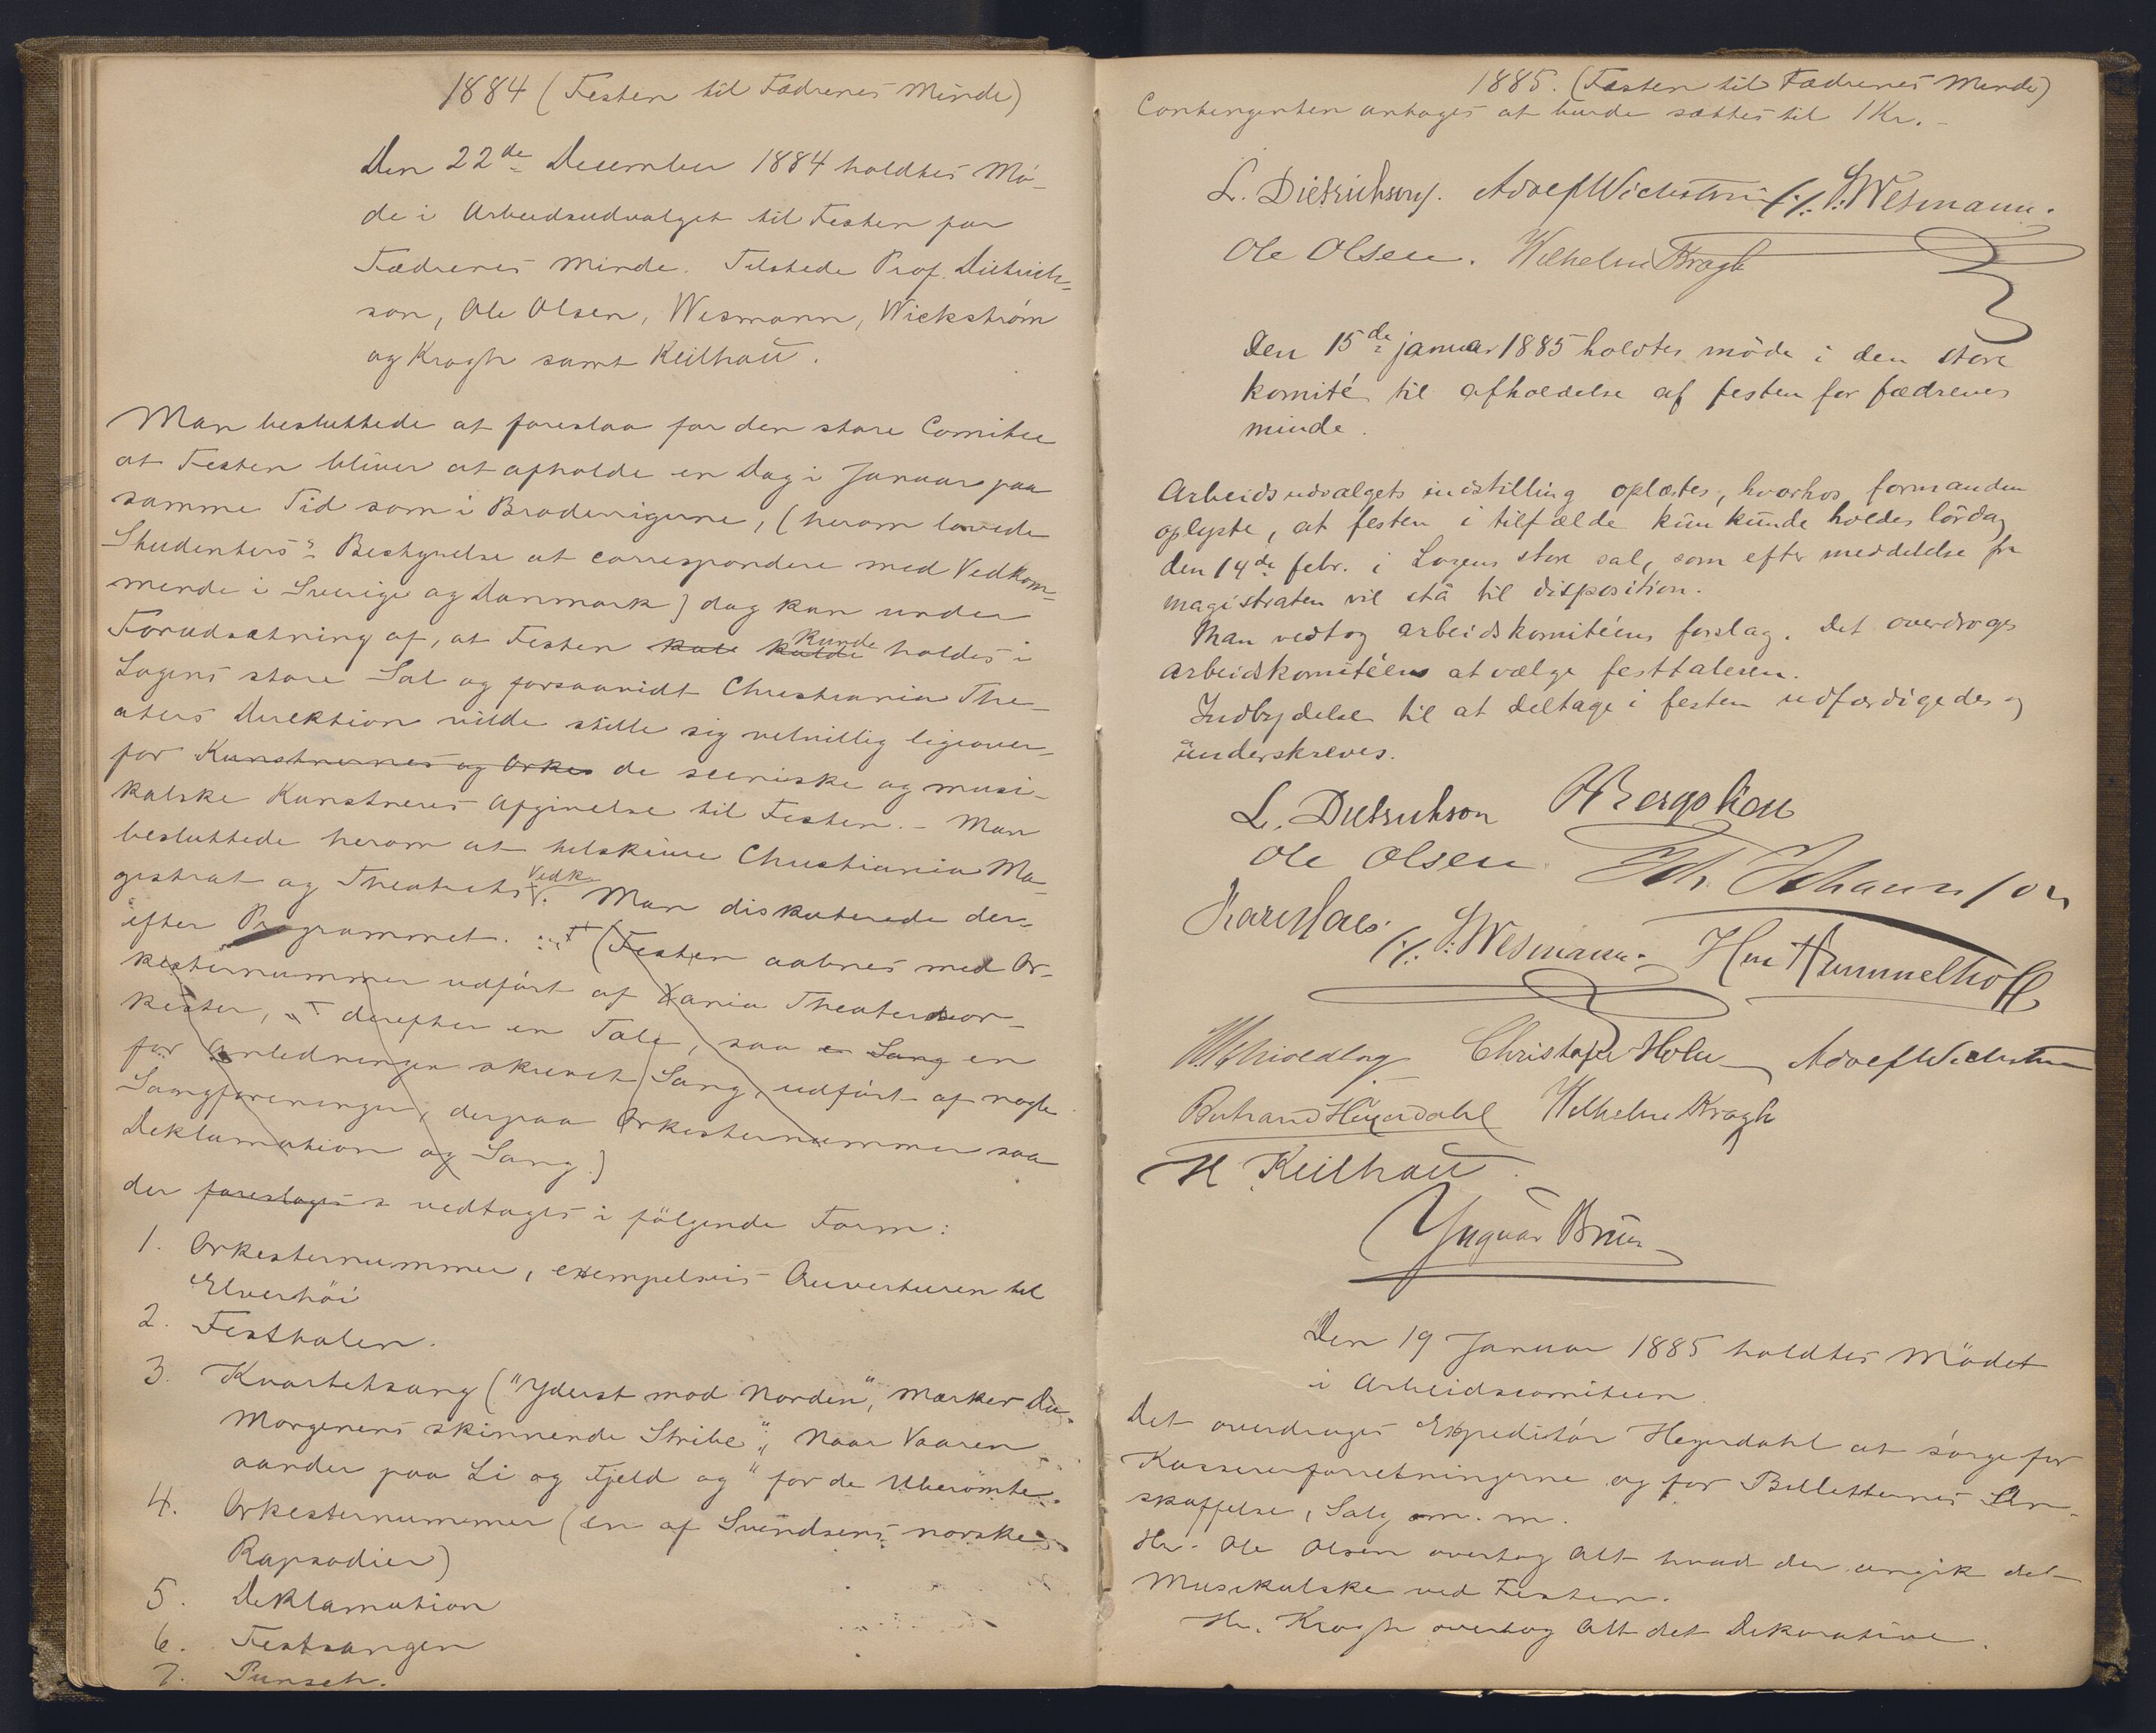 1884 (Festen til Fædrenes Minde)
Den 22de December 1884 holdtes Mö-
de i Arbeidsudvalget til Festen for
Fædrenes Minde. Tilstede Prof. Dietrich-
son, Ole Olsen, Wesmann, Wickström
og Krogh samt Keilhau.
Man besluttede at foreslaa for den store Comitee
at Festen bliver at afholde en Dag i Januar paa
samme Tid som i Broderrigerne, (herom lovede
Studenters: Bestyrelse at correspondere med Vedkom-
mende i Sverige og Danmark) dog kun under
Forudsætning af, at Festen kunde holdes i
Logens store Sal og forsaavidt Christiania The-
aters Direktion vilde stille sig velvillig ligeover-
for Kunstnernes og Orkes de sceniske og musi-
kalske Kunstneres Afgivelse til Festen. - Man
besluttede herom at tilskrive Christiania Ma-
gistrat og Theatrets Vedk. Man diskuterede der-
efter Programmet. (Festen aabnes med Or-
kesternummer udført af Xania Theaters or-
kester, derefter en Tale, saa en Sang en
for Anledningen skrevet Sang, udfört af nogle
Sangforeninger, derpaa Orkesternummer saa
Deklamation og Sang)
der foreslages vedtages i fölgende Form:
1. Orkesternummer, exempelvis Ouverturen til
Elverhöi
2. Festtalen.
3. Kvartetsang ("Yderst mod Norden", Mærker Du
Morgenens skinnende Stribe", "Naar Vaaren
aander paa Li og Fjeld og "for de Uberömte.
4. Orkesternummer (en af Svendsens norske
Rapsodier)
5. Deklamation
6. Festsangen
7. Punsch.
1885. (Festen til Fædrenes Minde)
Contingenten antoges at burde sættes til 1 Kr. -
L. Dietrichson. Adolf Wickström S. Wesmann.
Ole Olsen. Wilhelm Krogh
Den 15de januar 1885 holdtes möde i den store
komité til afholdelse af festen for fædrenes
minde.
Arbeidsudvalgets indstilling oplæstes, hvorhos formanden
oplyste, at festen i tilfælde kun kunde holdes lördag
den 14de febr. i Logens store sal, som efter meddelelse fra
magistraten vil stå til disposition.
Man vedtog arbeidskomitéens forslag. Det overdroges
arbeidskomitéen at vælge festtaleren.
Indbydelse til at deltage i festen udfærdigedes og
underskreves.
L. Dietrichson O Bergslien
Ole Olsen. Fch. Johannson
S. Wesmann. Hm Hammelhoff
Christofer Holm Adolf Wickström
Bertrand Heyerdahl Wilhelm Krogh
H Keilhau.
Yngvar Brun
Den 19 Januar 1885 holdtes Mödet
i Arbeidscomiteen
Det overdroges Expeditör Heyerdahl at sörge for
Kassererforretningerne og for Billetternes An-
skaffelse, Salg m. m.
Hr. Ole Olsen overtog Alt hvad der angik det
Musikalske ved Festen.
Hr. Krogh overtog Alt det Dekorative.